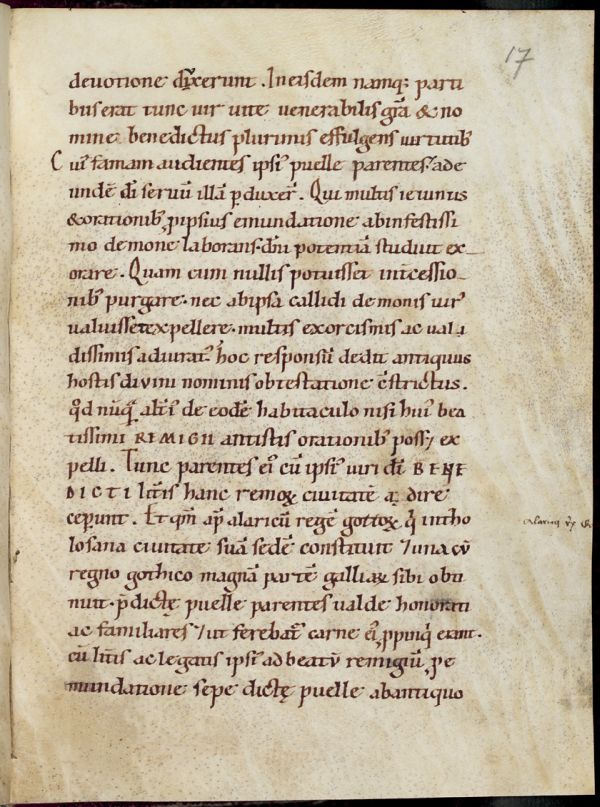 17
devotione dix̄erunt. In eisdem namq; parti
bus erat tunc uir uite uenerabilis grā & no
mine benedictus plurimis effulgens uirtutib᷒
Cui᷒ famam audientes ipsi᷒ puelle parentes. ade
undē dī seruū illā pduxer̄. Qui multis ieiuniis
& orationib᷒, p ipsius emundatione ab infestissi
mo demone laborans. dn̄i potentiā studuit ex
orare. Quam cum nullis potuisset int̄cessio
nib᷒ purgare. nec ab ipsa callidi demonis uir᷒
ualuisset expellere. multis exorcismis ac uali
dissimis adiurat᷒. hoc responsū dedit antiquus
hostis diuini nominis obtestatione c̄strictus.
qd̄ nūq̄ alt̄i᷒ de eodē habitaculo nisi hui᷒ bea
tissimi REMIGII antistis orationib᷒ poss& ex
pelli. Tunc parentes ei᷒ cū ipsi᷒ uiri dī BENE
DICTI litt̄is hanc remoꝝ ciuitatē adire
ceperunt. Et qm̄ ap̄ alaricū regē gottoꝝ q̄ intho
losana ciuitate suā sedē constituit & una cū
regno gothico magnā partē galliaꝝ sibi obti
nuit. p̄dictę puelle parentes ualde honorati
ac familiares & ut ferebat᷒ carne ei, ppinq̄ erant.
cū litt̄is ac legatis ipsi᷒ ad beatū remigiū, p e
mundatione sepe dictę puelle ab antiquo